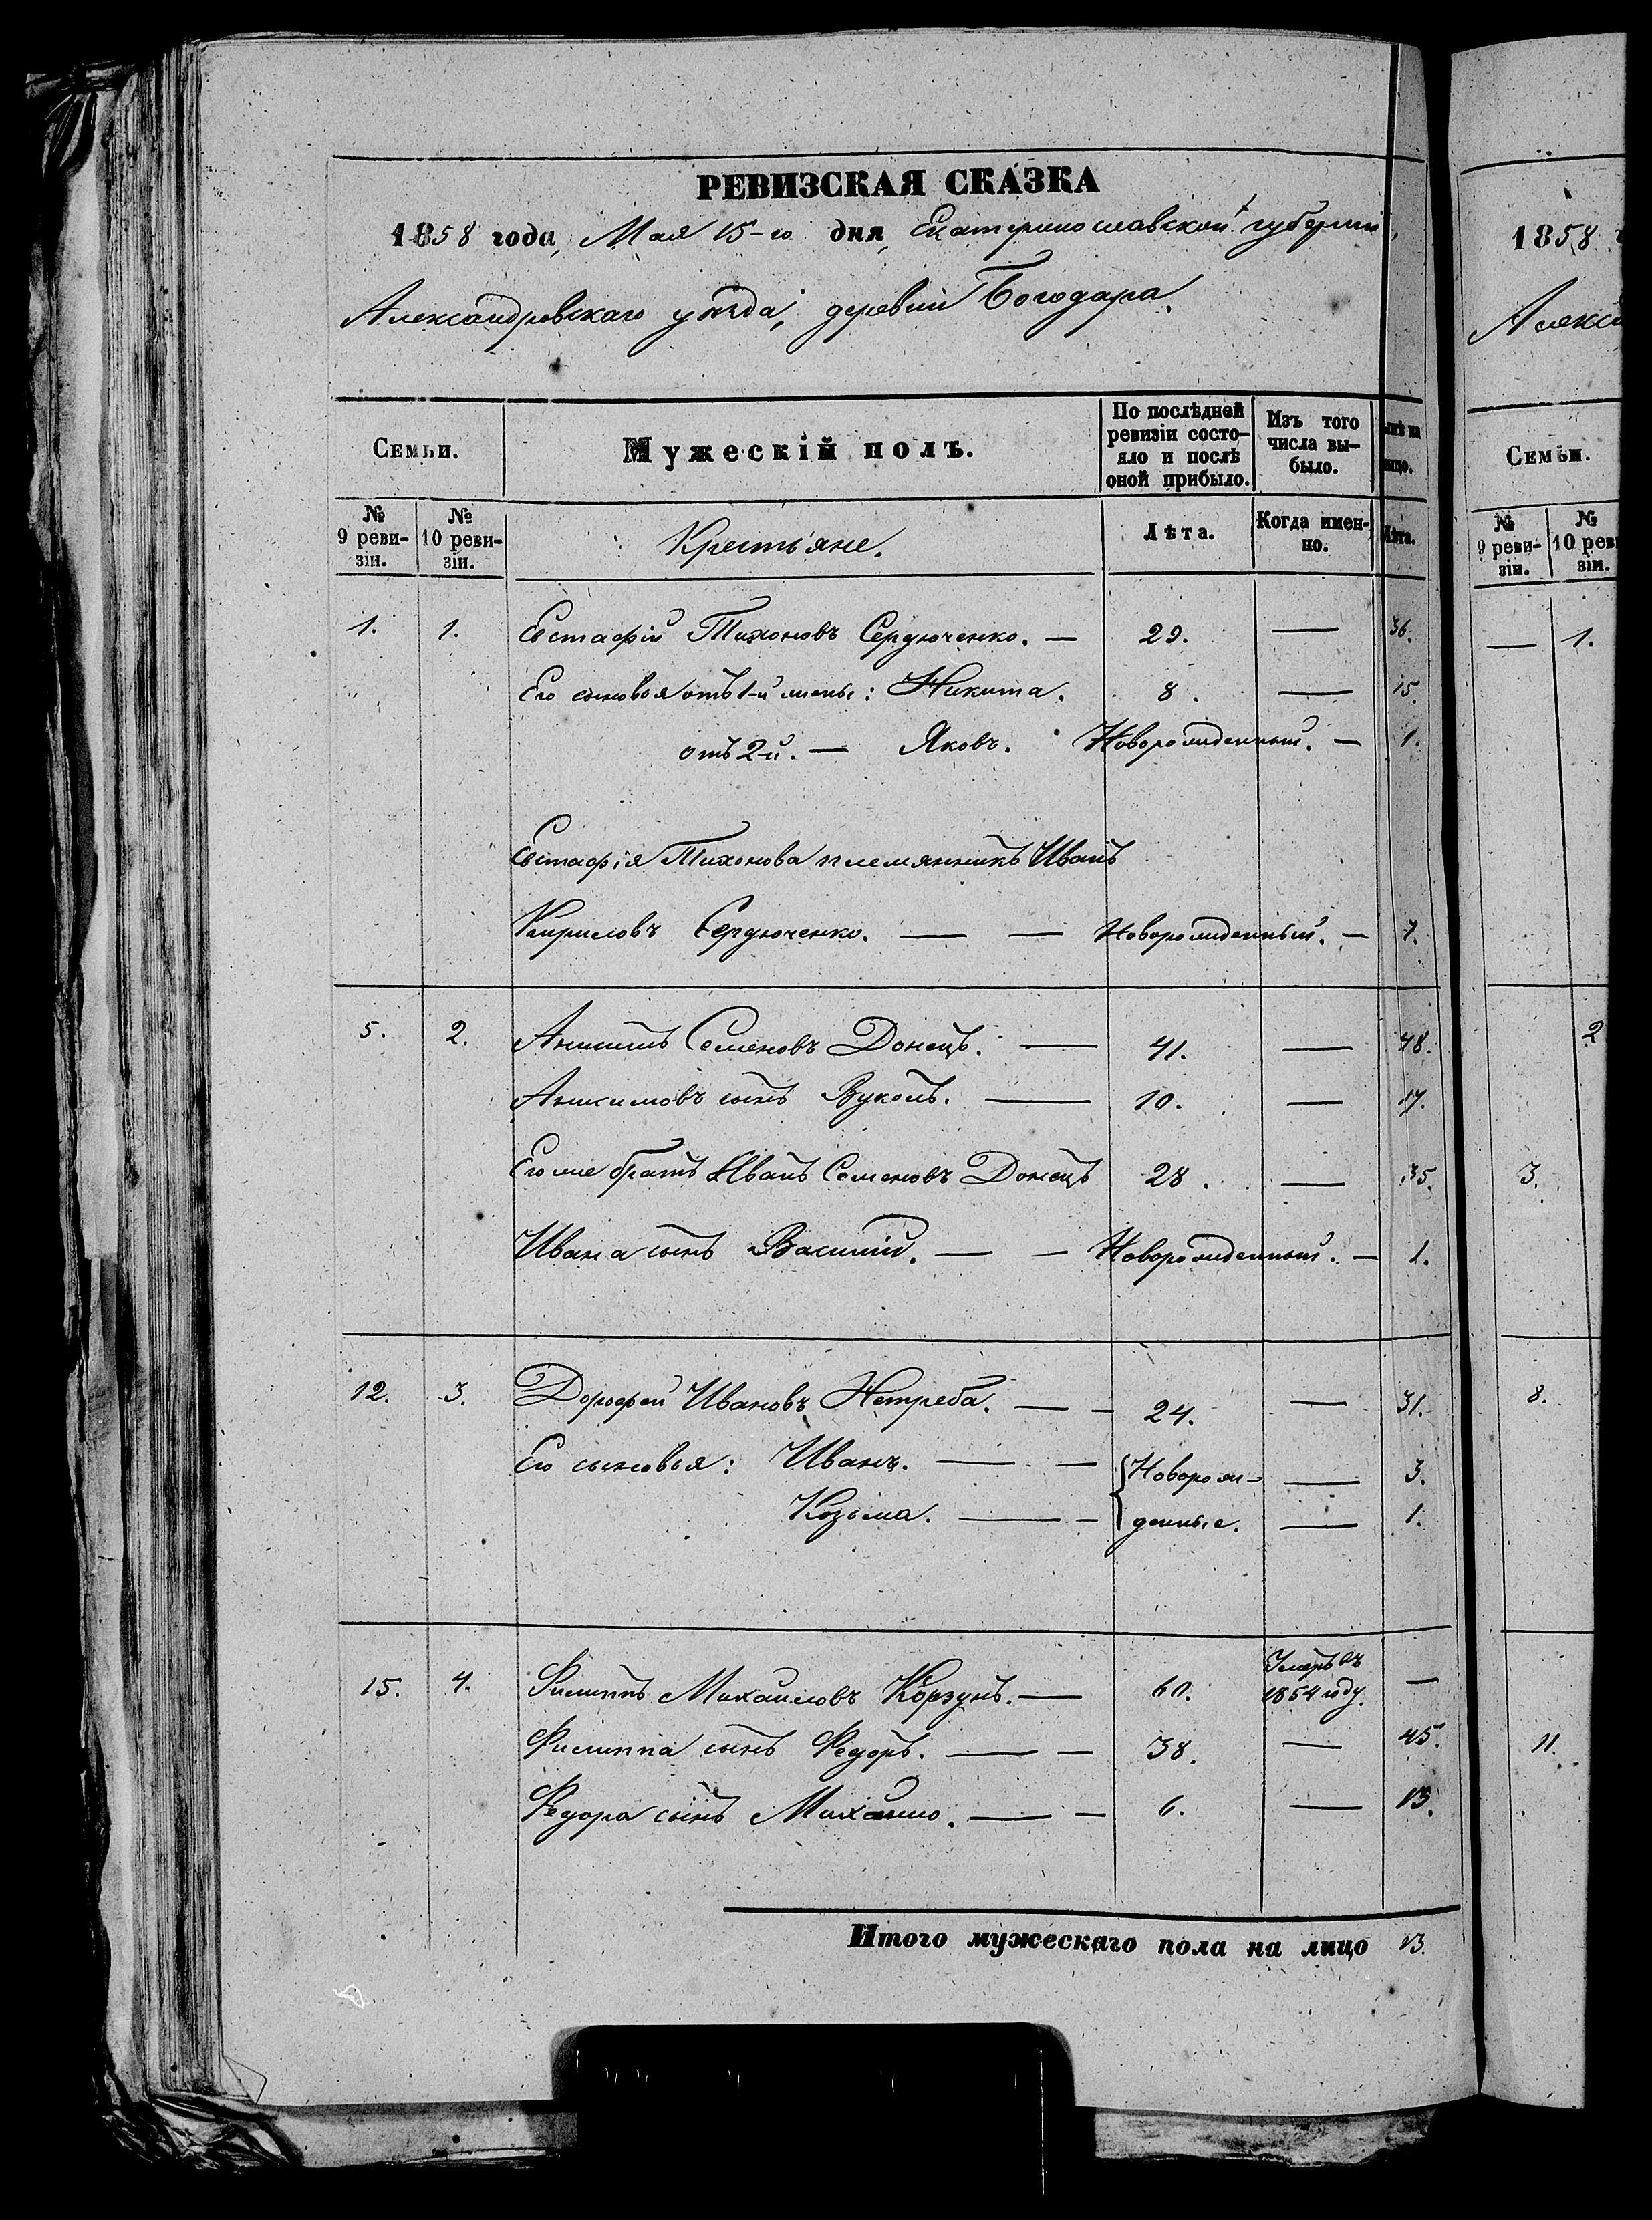 РЕВИЗСКАЯ СКАЗКА
1858 года, Мая 15-го дня, Екатеринославской губерніи,
Александровскаго уѣзда, деревни Богодара.
Семьи.
Мужескій полъ.
По послѣдней ревизіи состо-
яло и послѣ оной прибыло.
Изъ того числа вы-
было.
№ 9 реви-
зіи.
№ 10 реви-
зіи.
Крестьяне.
Лѣта.
Когда имен-
но.
Лѣта.
1. 1. Евстафій Тихоновъ Сердюченко. — 29. — 36.
Его сыновья отъ 1-й жены: Никита. 8. — 15.
отъ 2-й. — Яковъ. Новорожденный. — 1.
Евстафія Тихонова племянникъ Иванъ
Кириловъ Сердюченко. — — Новорожденный. — 7.
5. 2. Анисимъ Семеновъ Донецъ. — 41. — 48.
Анисимовъ сынъ Вуколъ. — 10. — 17.
Его же братъ Иванъ Семеновъ Донецъ 28. — 35.
Ивана сынъ Василій. — — Новорожденный. — 1.
12. 3. Дорофей Ивановъ Нетреба. — — 24. — 31.
Его сыновья: Иванъ. — — Новорож- — 3.
Козьма. — — денные. — 1.
15. 4. Филиппъ Михайловъ Корзунъ. — 60. Умеръ въ 1854 году. —
Филиппа сынъ Федоръ. — — 38. — 45.
Федора сынъ Михайло. — — 6. — 13.
Итого мужескаго пола на лицо 13.
1858
Алекса
Семьи.
№ 9 реви-
зіи.
№ 10 реви
зіи.
— 1.
2
3.
8.
11.